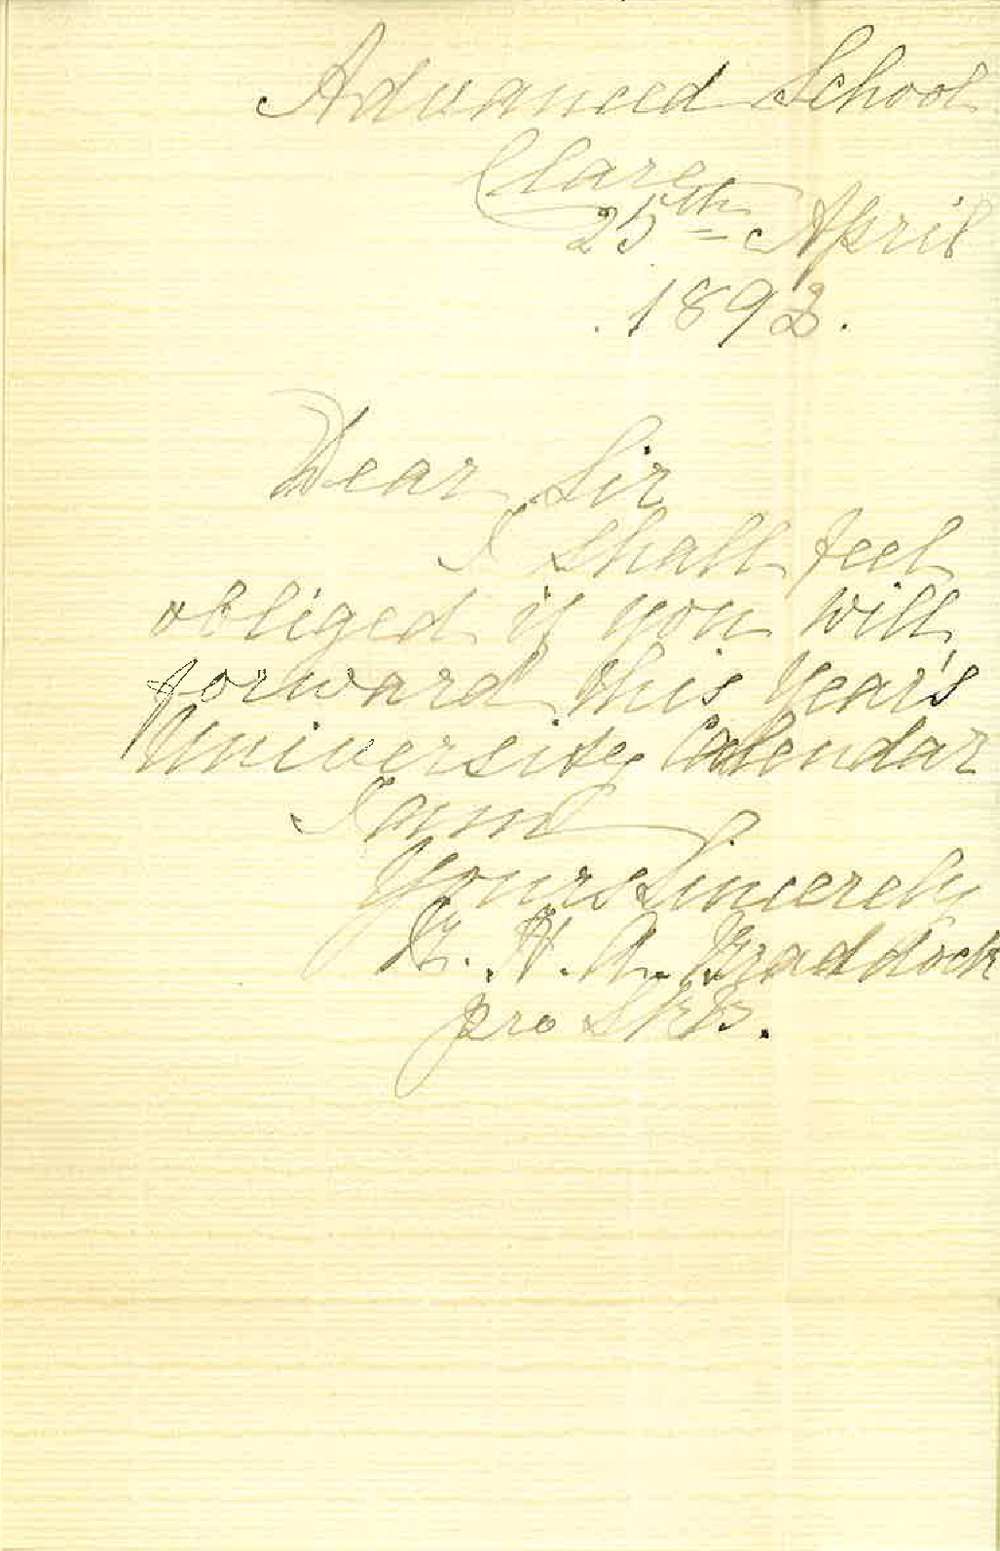 Advanced School
Clare
25th April
1893.
Dear Sir
I shall feel
obliged if you will
forward this Year's
University Calendar
I am
Yours Sincerely
H. A. Braddock
pro